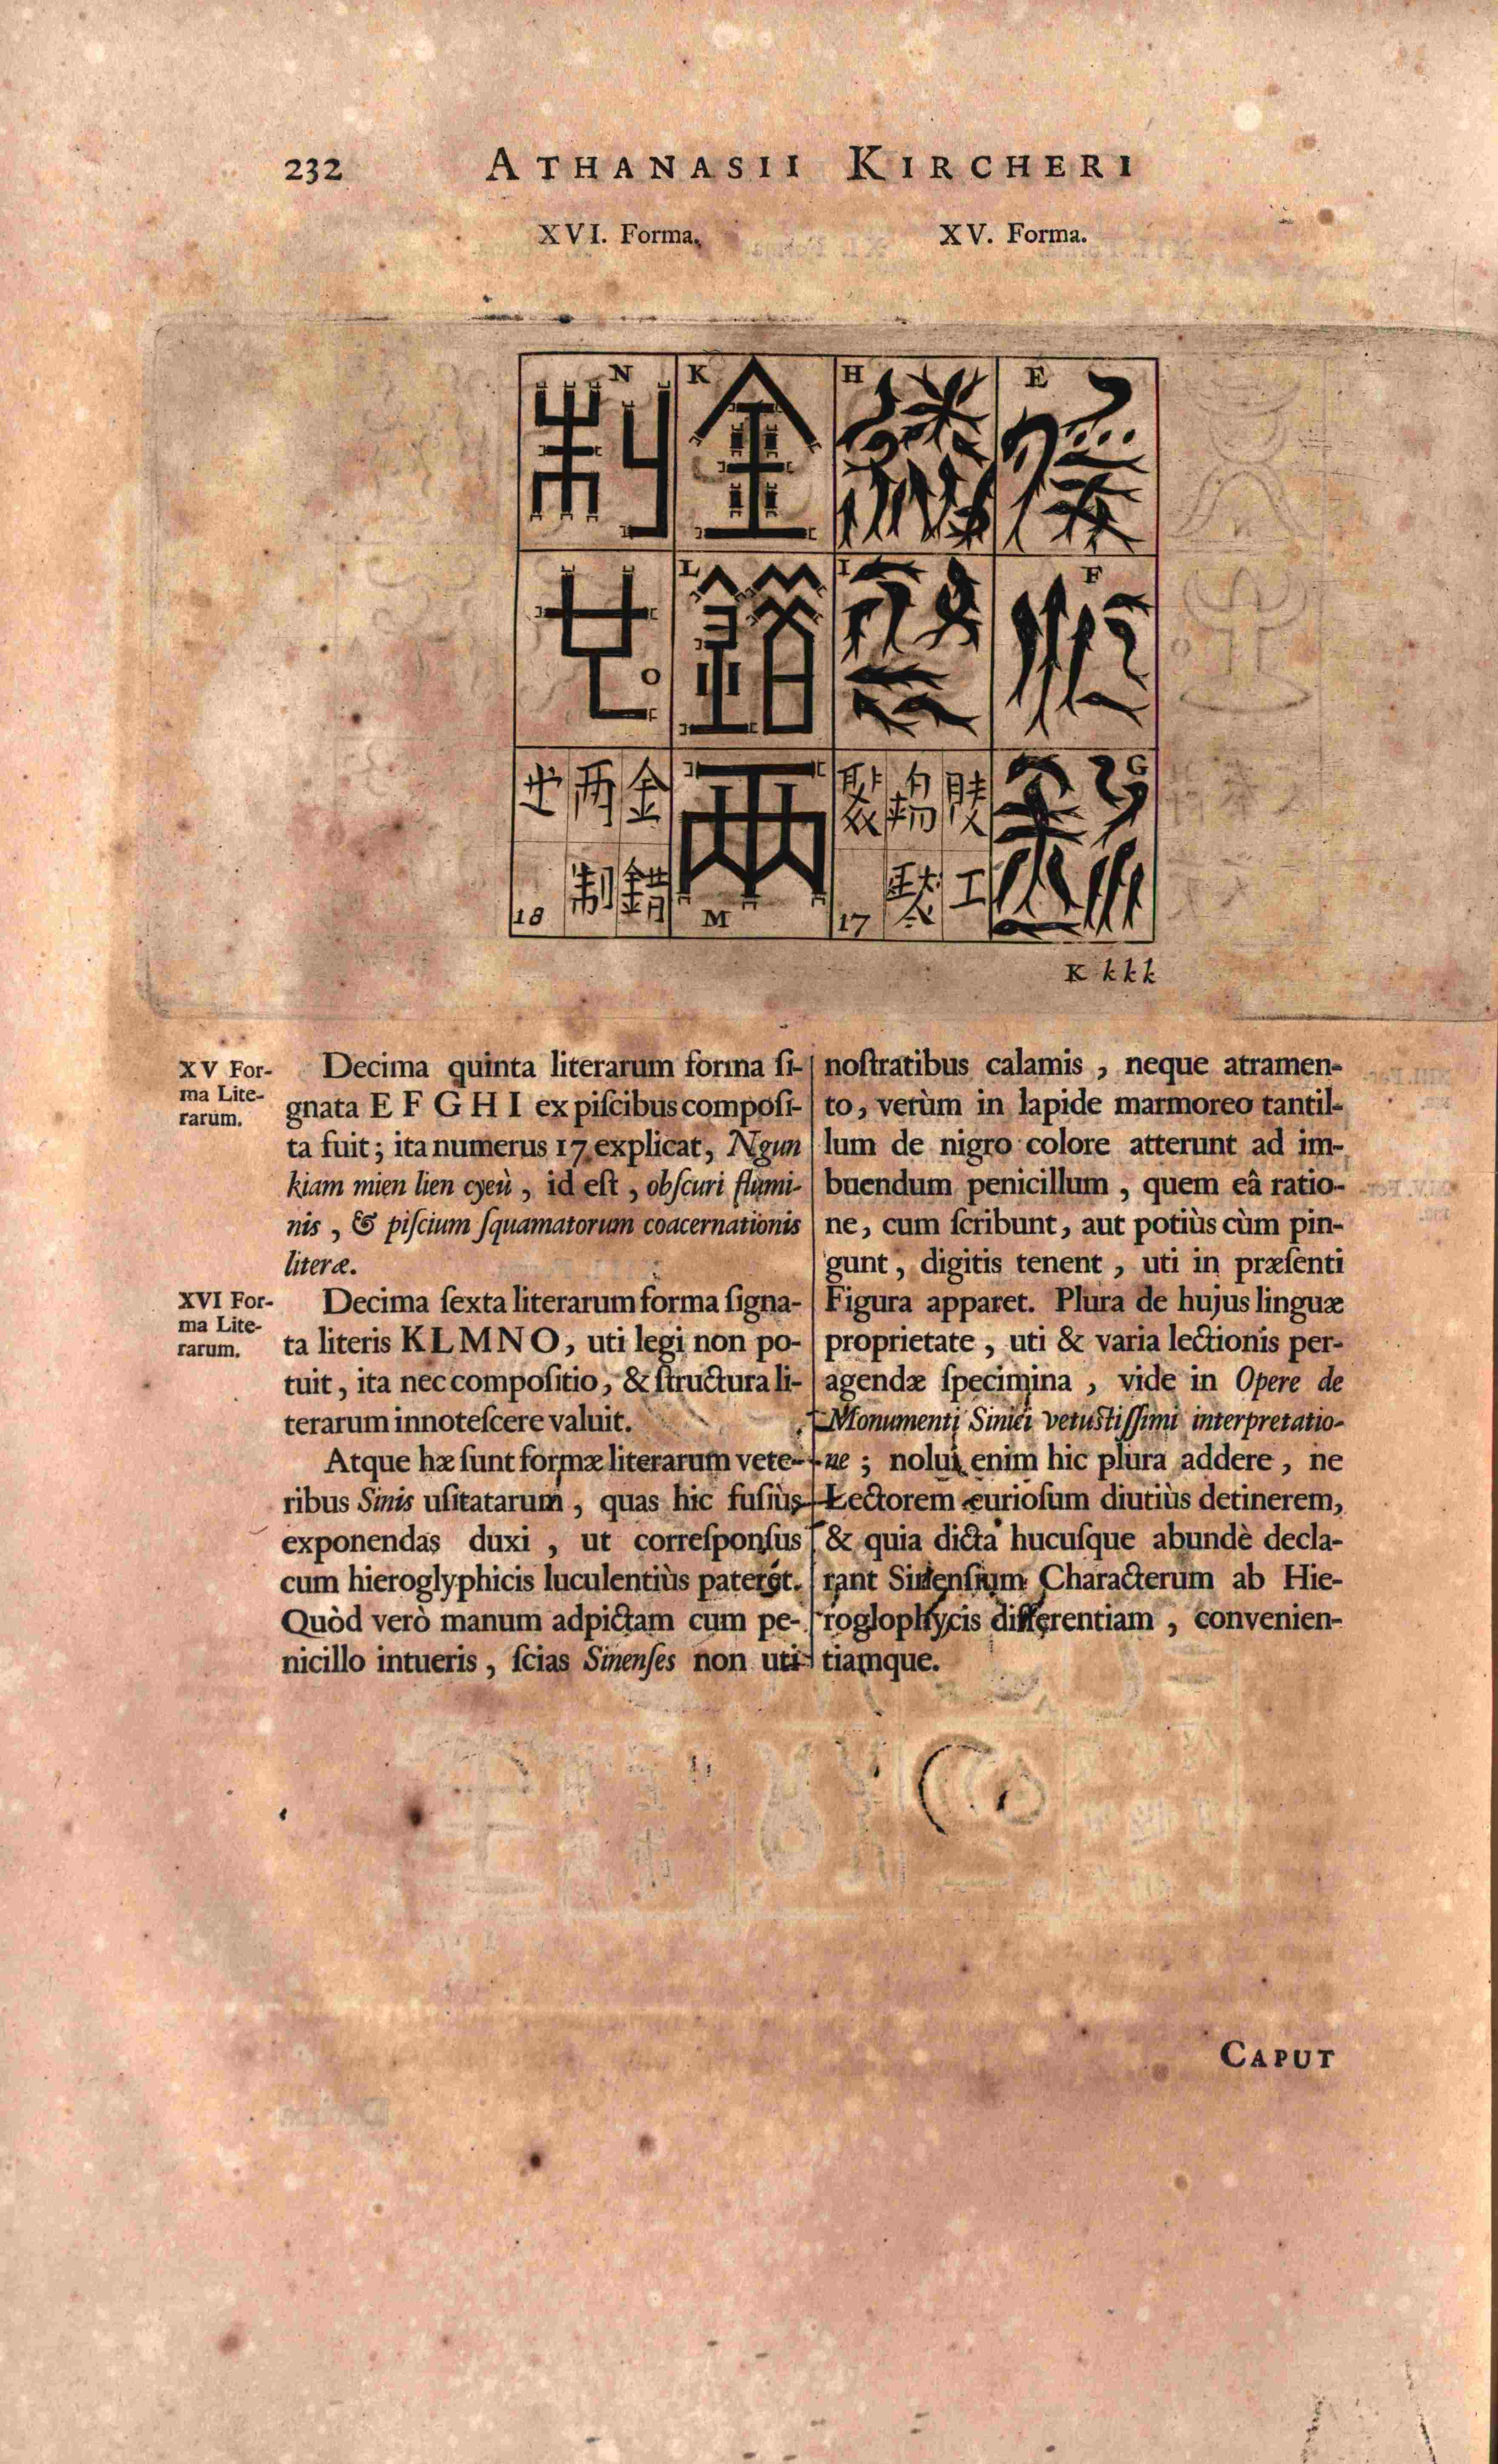 232 ATHANASII KIRCHERI
XVI. Forma. XV. Forma.
N K H E
L I F
O G
金 两
錯 制
工
18 M 17
K kkk
XV For-
ma Lite-
rarum.
Decima quinta literarum forma ſi-
gnata E F G H I ex piſcibus compoſi-
ta fuit; ita numerus 17 explicat, Ngun
kiam mien lien cyeù, id eſt, obſcuri flumi-
nis, & piſcium ſquamatorum coacernationis
literæ.
XVI For-
ma Lite-
rarum.
Decima ſexta literarum forma ſigna-
ta literis K L M N O, uti legi non po-
tuit, ita nec compoſitio, & ſtructura li-
terarum innoteſcere valuit.
Atque hæ ſunt formæ literarum vete-
ribus Sinis uſitatarum, quas hic fuſiùs
exponendas duxi, ut correſponſus
cum hieroglyphicis luculentiùs pateret.
Quòd verò manum adpictam cum pe-
nicillo intueris, ſcias Sinenſes non uti
noſtratibus calamis, neque atramen-
to, verùm in lapide marmoreo tantil-
lum de nigro colore atterunt ad im-
buendum penicillum, quem eâ ratio-
ne, cum ſcribunt, aut potiùs cùm pin-
gunt, digitis tenent, uti in præſenti
Figura apparet. Plura de hujus linguæ
proprietate, uti & varia lectionis per-
agendæ ſpecimina, vide in Opere de
Monumenti Sinici vetuſtiſſimi interpretatio-
ne; nolui enim hic plura addere, ne
Lectorem curioſum diutiùs detinerem,
& quia dicta hucuſque abundè decla-
rant Sinenſium Characterum ab Hie-
roglophycis differentiam, convenien-
tiamque.
CAPUT